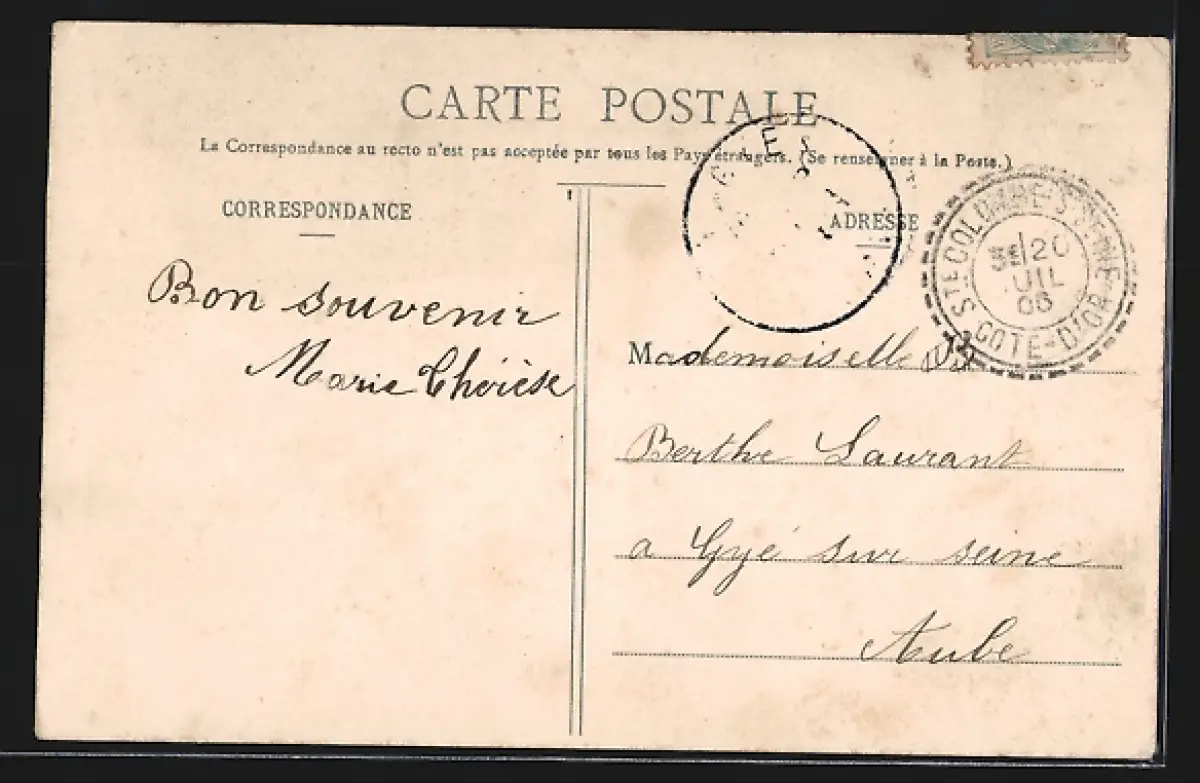 CARTE POSTALE
La Correspondance au recto n'est pas acceptée par tous les Pays étrangers. (Se renseigner à la Poste.)
CORRESPONDANCE
ADRESSE
STE COLOMBE-S-SEINE
20
JUIL
06
COTE-D'OR
Bon souvenir
Marie Thérèse
Mademoiselle
Berthe Laurant
a Gyé sur seine
Aube